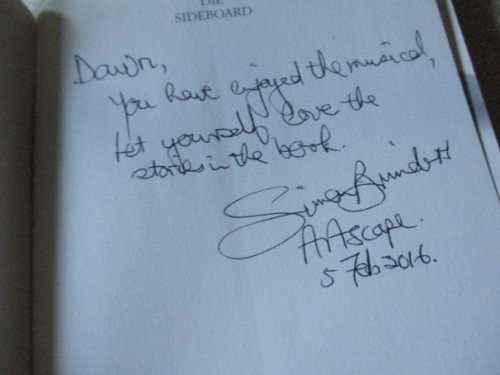 DIE
SIDEBOARD
Dawn,
You have enjoyed the musical,
Let yourself love the
stories in the book.
Simon Brindett
Artscape.
5 Feb 2016.